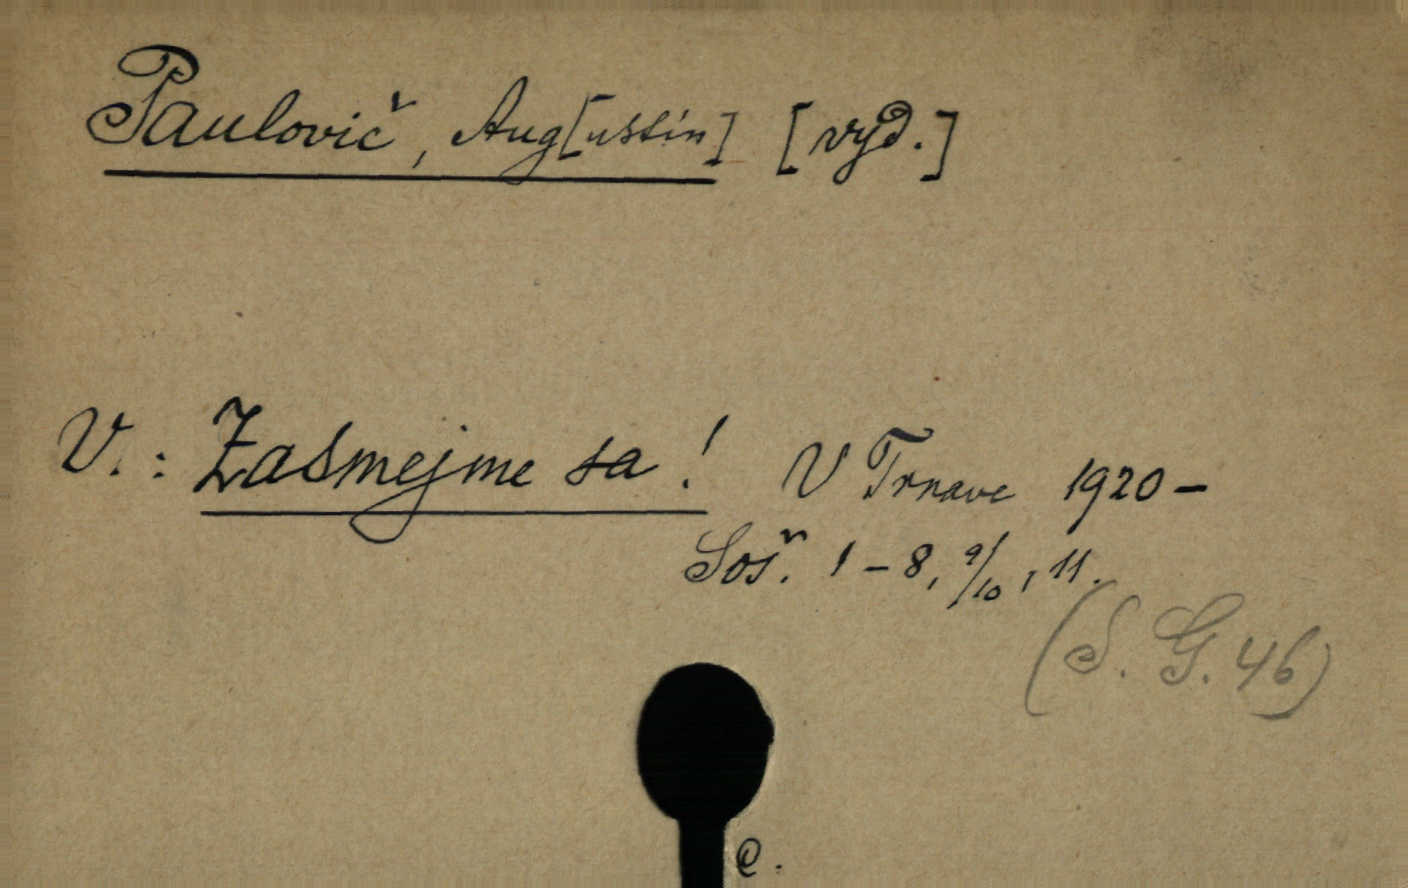 Paulovič, Aug[ustín] [vyd.]
V.: Zasmejme sa! V Trnave 1920 -
Soš. 1 - 8, 9/10, 11.
(S. G. 46)
e.